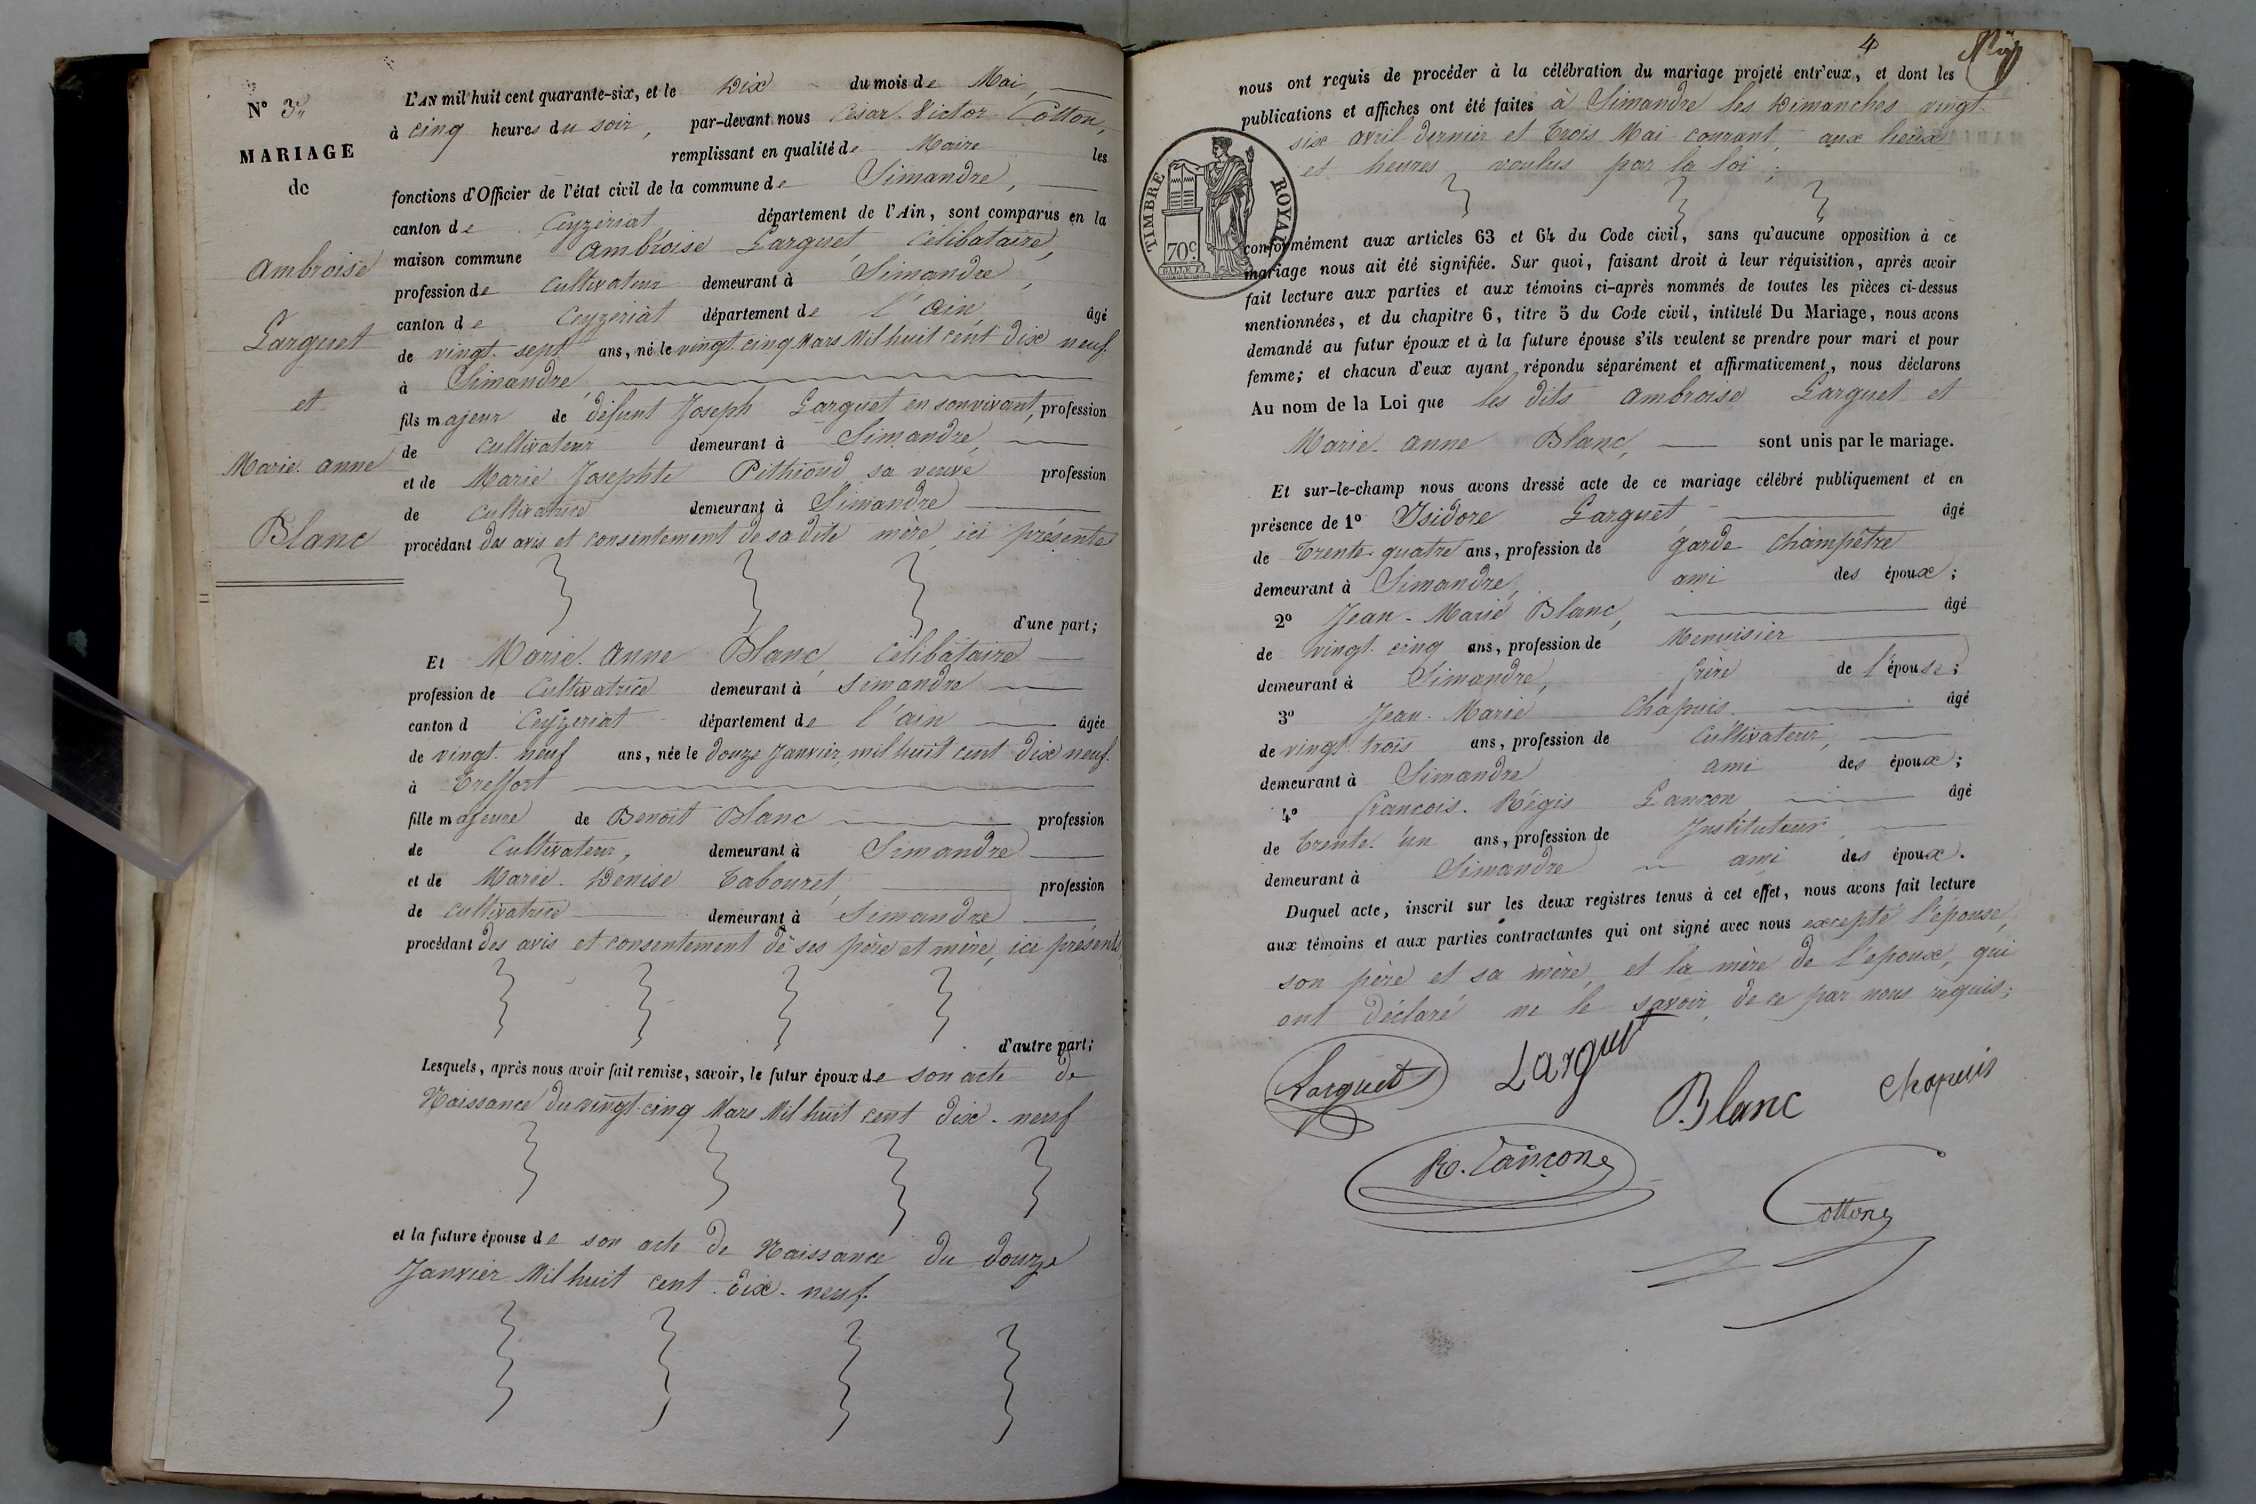 N° 3
MARIAGE
de
Ambroise
Larguet
et
Marie. anne
Blanc
L'AN mil huit cent quarante-six, et le Dix du mois de Mai,
à cinq heures du soir, par-devant nous César-Victor Cotton,
remplissant en qualité de Maire les
fonctions d'Officier de l'état civil de la commune de Simandre,
canton de Ceyzeriat département de l'Ain, sont comparus en la
maison commune Ambroise Larguet, célibataire,
profession de Cultivateur demeurant à Simandre,
canton de Ceyzeriat département de l'ain, âgé
de vingt. sept ans, né le vingt. cinq Mars Mil huit cent dix neuf.
à Simandre
fils majeur de défunt Joseph Larguet en son vivant, profession
de cultivateur demeurant à Simandre,
et de Marie Josephte Pithioud sa veuve profession
de cultivatrice demeurant à Simandre
procédant des avis et consentement de sa dite mère, ici présente
d'une part;
Et Marie. Anne Blanc, célibataire
profession de Cultivatrice demeurant à Simandre
canton d Ceyzeriat département de l'ain âgée
de vingt. neuf ans, née le douze Janvier, mil huit cent dix neuf.
à Treffort
fille majeure de Benoit Blanc profession
de Cultivateur, demeurant à Simandre
et de Marie. Denise Tabouret, profession
de cultivatrice demeurant à Simandre
procédant des avis et consentement de ses père et mère, ici présents,
d'autre part;
Lesquels, après nous avoir fait remise, savoir, le futur époux de son acte de
Naissance du vingt-cinq Mars Mil huit cent dix-neuf
et la future épouse de son acte de Naissance du douze
Janvier Mil huit cent dix-neuf.
4
nous ont requis de procéder à la célébration du mariage projeté entr'eux, et dont les
publications et affiches ont été faites à Simandre les Dimanches vingt.
six avril dernier et Trois Mai courant, aux lieux
et heures voulus par la loi;
TIMBRE ROYAL
70c
conformément aux articles 63 et 64 du Code civil, sans qu'aucune opposition à ce
mariage nous ait été signifiée. Sur quoi, faisant droit à leur réquisition, après avoir
fait lecture aux parties et aux témoins ci-après nommés de toutes les pièces ci-dessus
mentionnées, et du chapitre 6, titre 5 du Code civil, intitulé Du Mariage, nous avons
demandé au futur époux et à la future épouse s'ils veulent se prendre pour mari et pour
femme; et chacun d'eux ayant répondu séparément et affirmativement, nous déclarons
Au nom de la Loi que les dits Ambroise Larguet et
Marie. Anne Blanc, sont unis par le mariage.
Et sur-le-champ nous avons dressé acte de ce mariage célébré publiquement et en
présence de 1° Isidore Larguet âgé
de Trente-quatre ans, profession de garde champêtre
demeurant à Simandre, ami des époux;
2° Jean-Marie Blanc, âgé
de vingt. cinq ans, profession de Menuisier
demeurant à Simandre, frère de l'épouse;
3° Jean-Marie Chapuis. âgé
de vingt trois ans, profession de Cultivateur,
demeurant à Simandre ami des époux;
4° François. Régis Lançon, âgé
de Trente. un ans, profession de Instituteur,
demeurant à Simandre ami des époux.
Duquel acte, inscrit sur les deux registres tenus à cet effet, nous avons fait lecture
aux témoins et aux parties contractantes qui ont signé avec nous excepté l'épouse,
son père et sa mère, et la mère de l'epoux, qui
ont déclaré ne le savoir, de ce par nous requis;
Larguet Larguet
Blanc chapuis
R. Lançon
Cotton